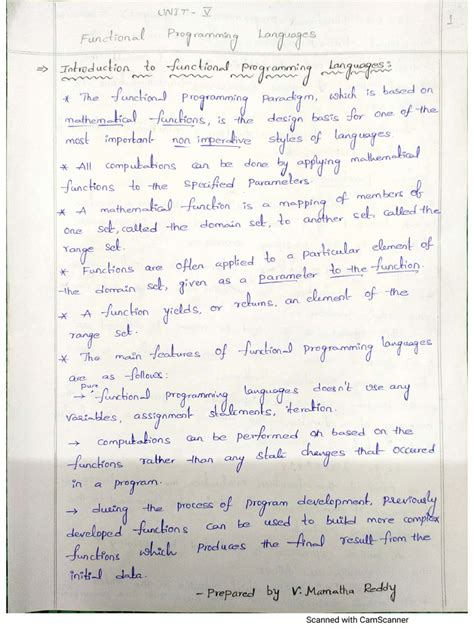 UNIT - V
1
Functional Programming Languages
⇒ Introduction to functional programming Languages:
* The functional programming Paradigm, which is based on
mathematical functions, is the design basis for one of the
most important non imperative styles of languages.
* All computations can be done by applying mathematical
functions to the specified Parameters.
* A mathematical function is a mapping of members of
one set, called the domain set, to another set, called the
range set.
* Functions are often applied to a particular element of
the domain set, given as a parameter to the function.
* A function yields, or returns, an element of the
range set.
* The main features of functional programming languages
are as follows:
→ pure functional programming languages doesn't use any
variables, assignment statements, iteration.
→ computations can be performed on based on the
functions rather than any state changes that occured
in a program.
→ during the process of program development, previously
developed functions can be used to build more complex
functions which produces the final result from the
initial data.
- Prepared by V. Mamatha Reddy
Scanned with CamScanner